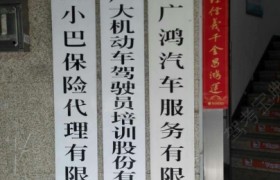 小巴保险代理有限
大机动车驾驶员培训股份有
广鸿汽车服务有限
信义千金昌鸿运